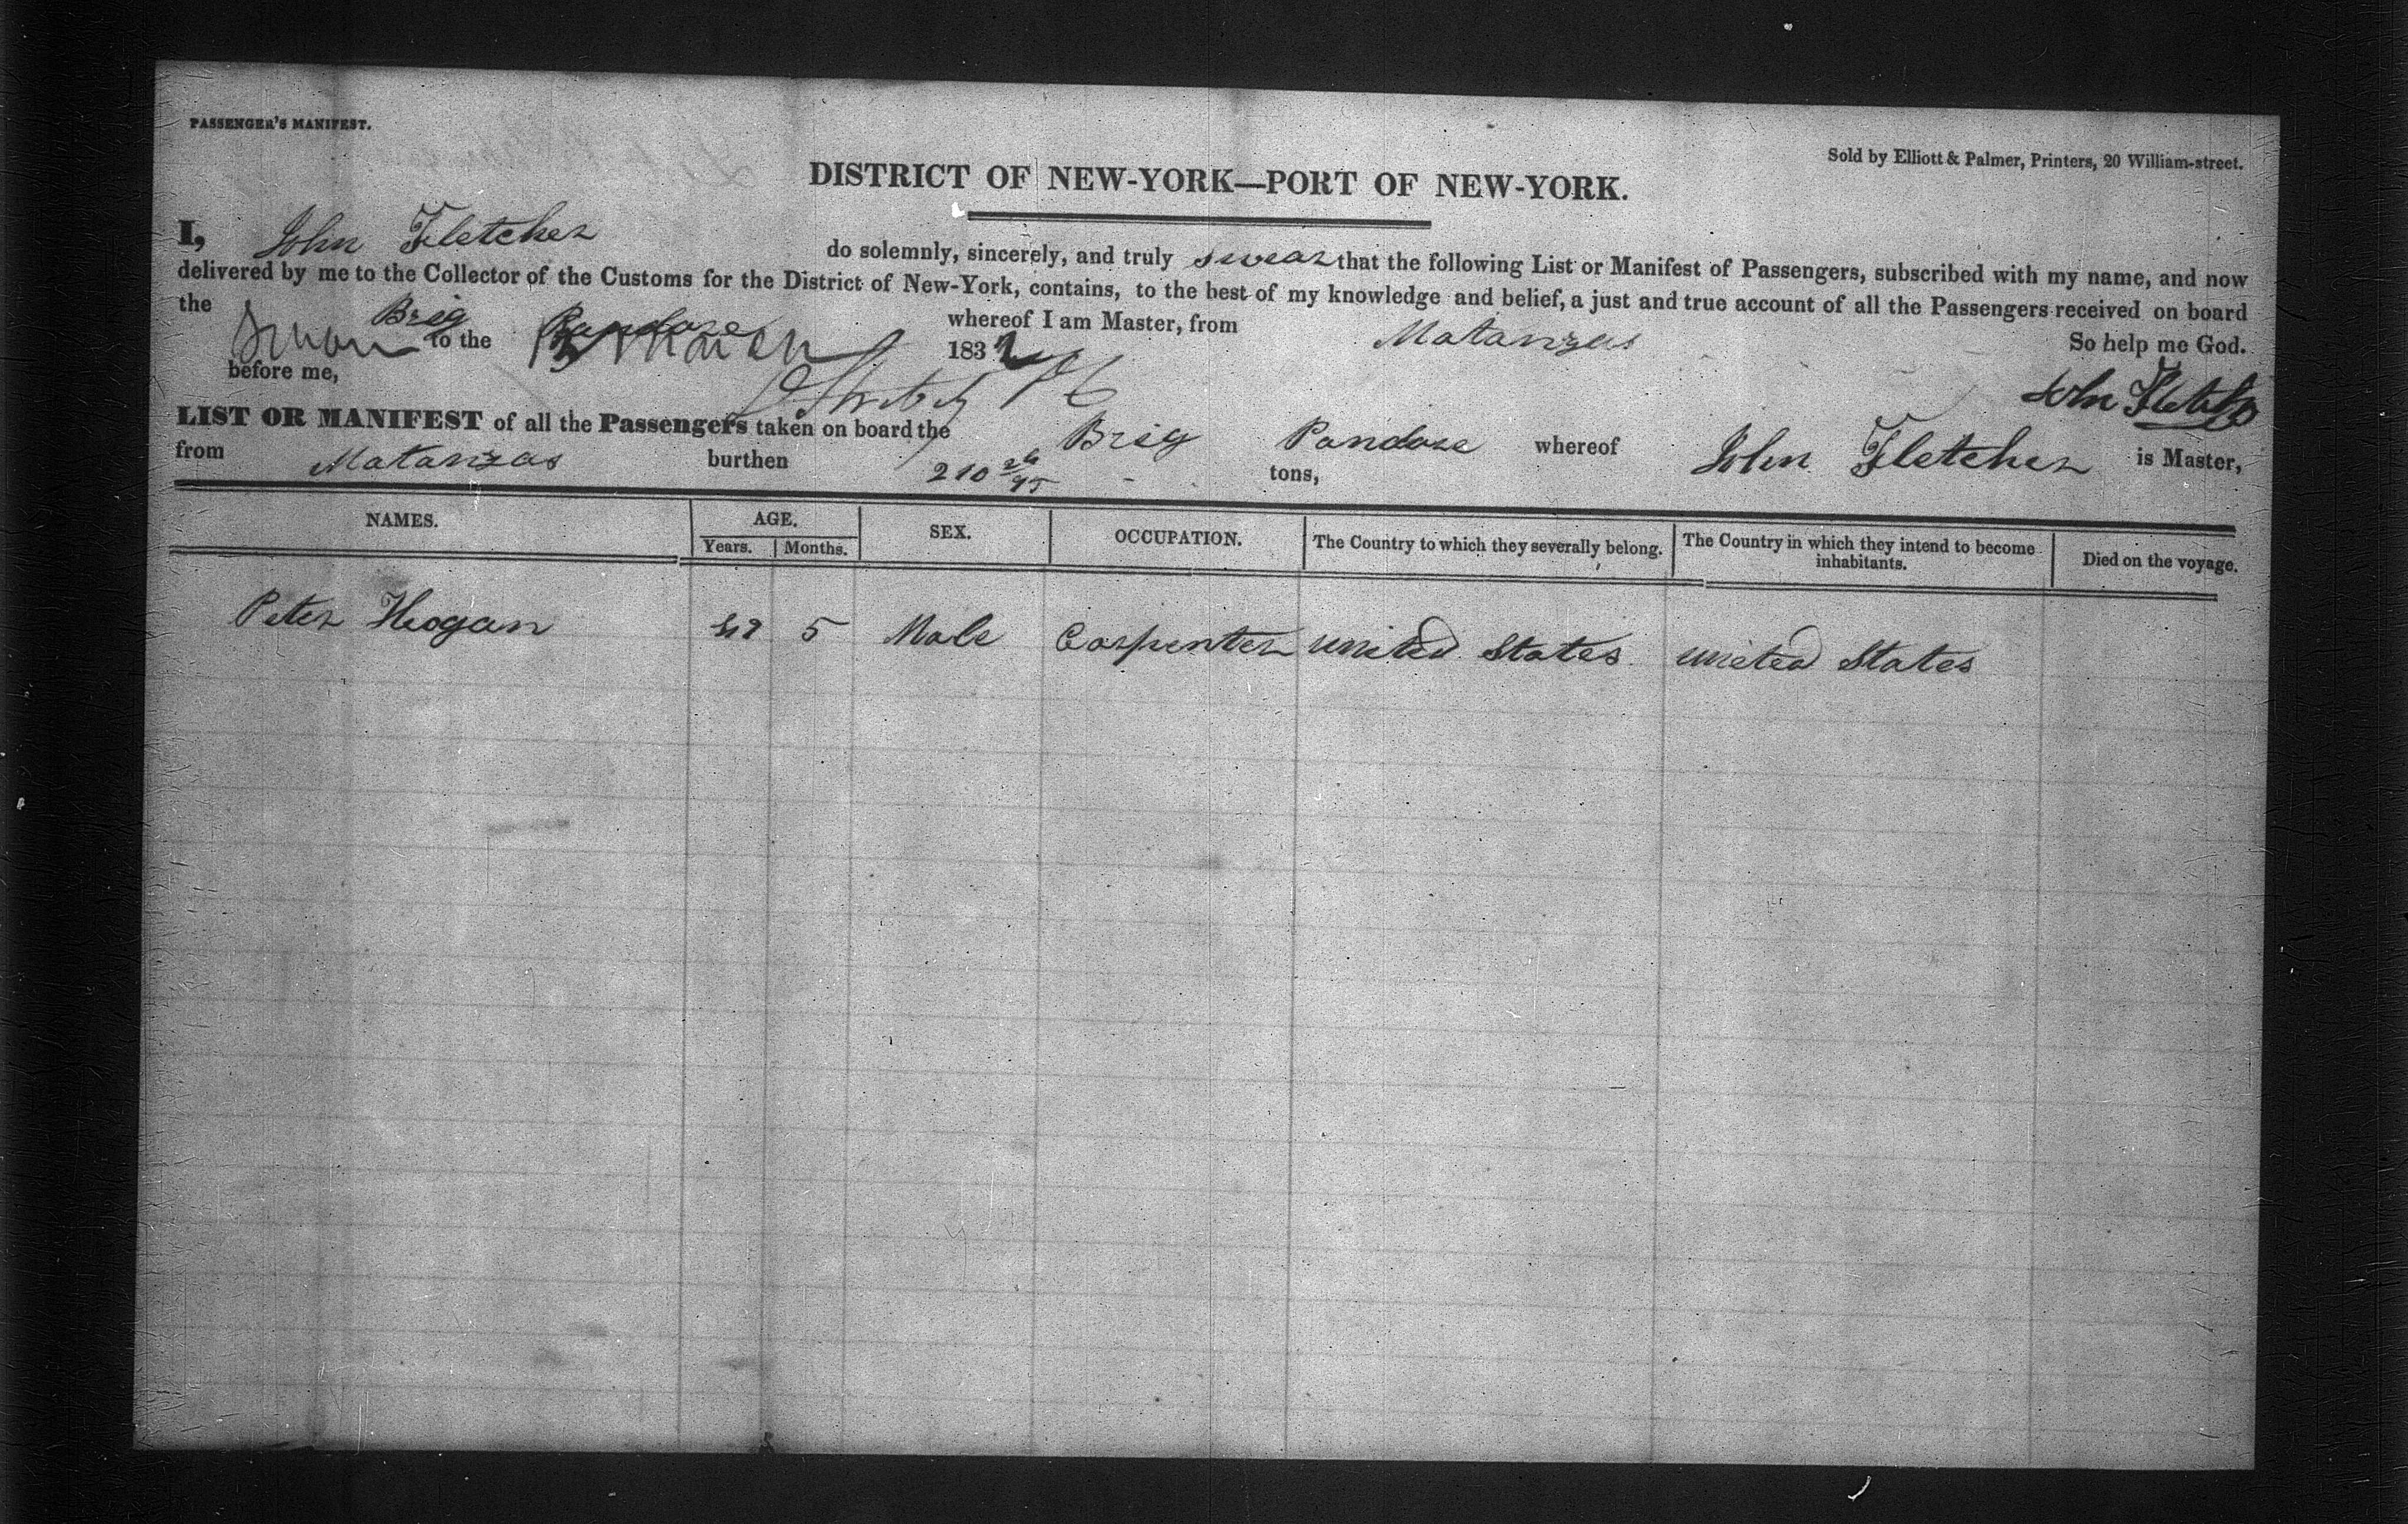 PASSENGER'S MANIFEST.
Sold by Elliott & Palmer, Printers, 20 William-street.
DISTRICT OF NEW-YORK—PORT OF NEW-YORK.
I, John Fletcher do solemnly, sincerely, and truly swear that the following List or Manifest of Passengers, subscribed with my name, and now
delivered by me to the Collector of the Customs for the District of New-York, contains, to the best of my knowledge and belief, a just and true account of all the Passengers received on board
the Brig Pandora whereof I am Master, from Matanzas
Sworn to the March 1832 So help me God.
before me, John Fletcher
LIST OR MANIFEST of all the Passengers taken on board the Brig Pandora whereof John Fletcher is Master,
from Matanzas burthen 210 26/95 tons,
NAMES. AGE. SEX. OCCUPATION. The Country to which they severally belong. The Country in which they intend to become inhabitants. Died on the voyage.
Years. Months.
Peter Hogan 5 Male Carpenter united States united States